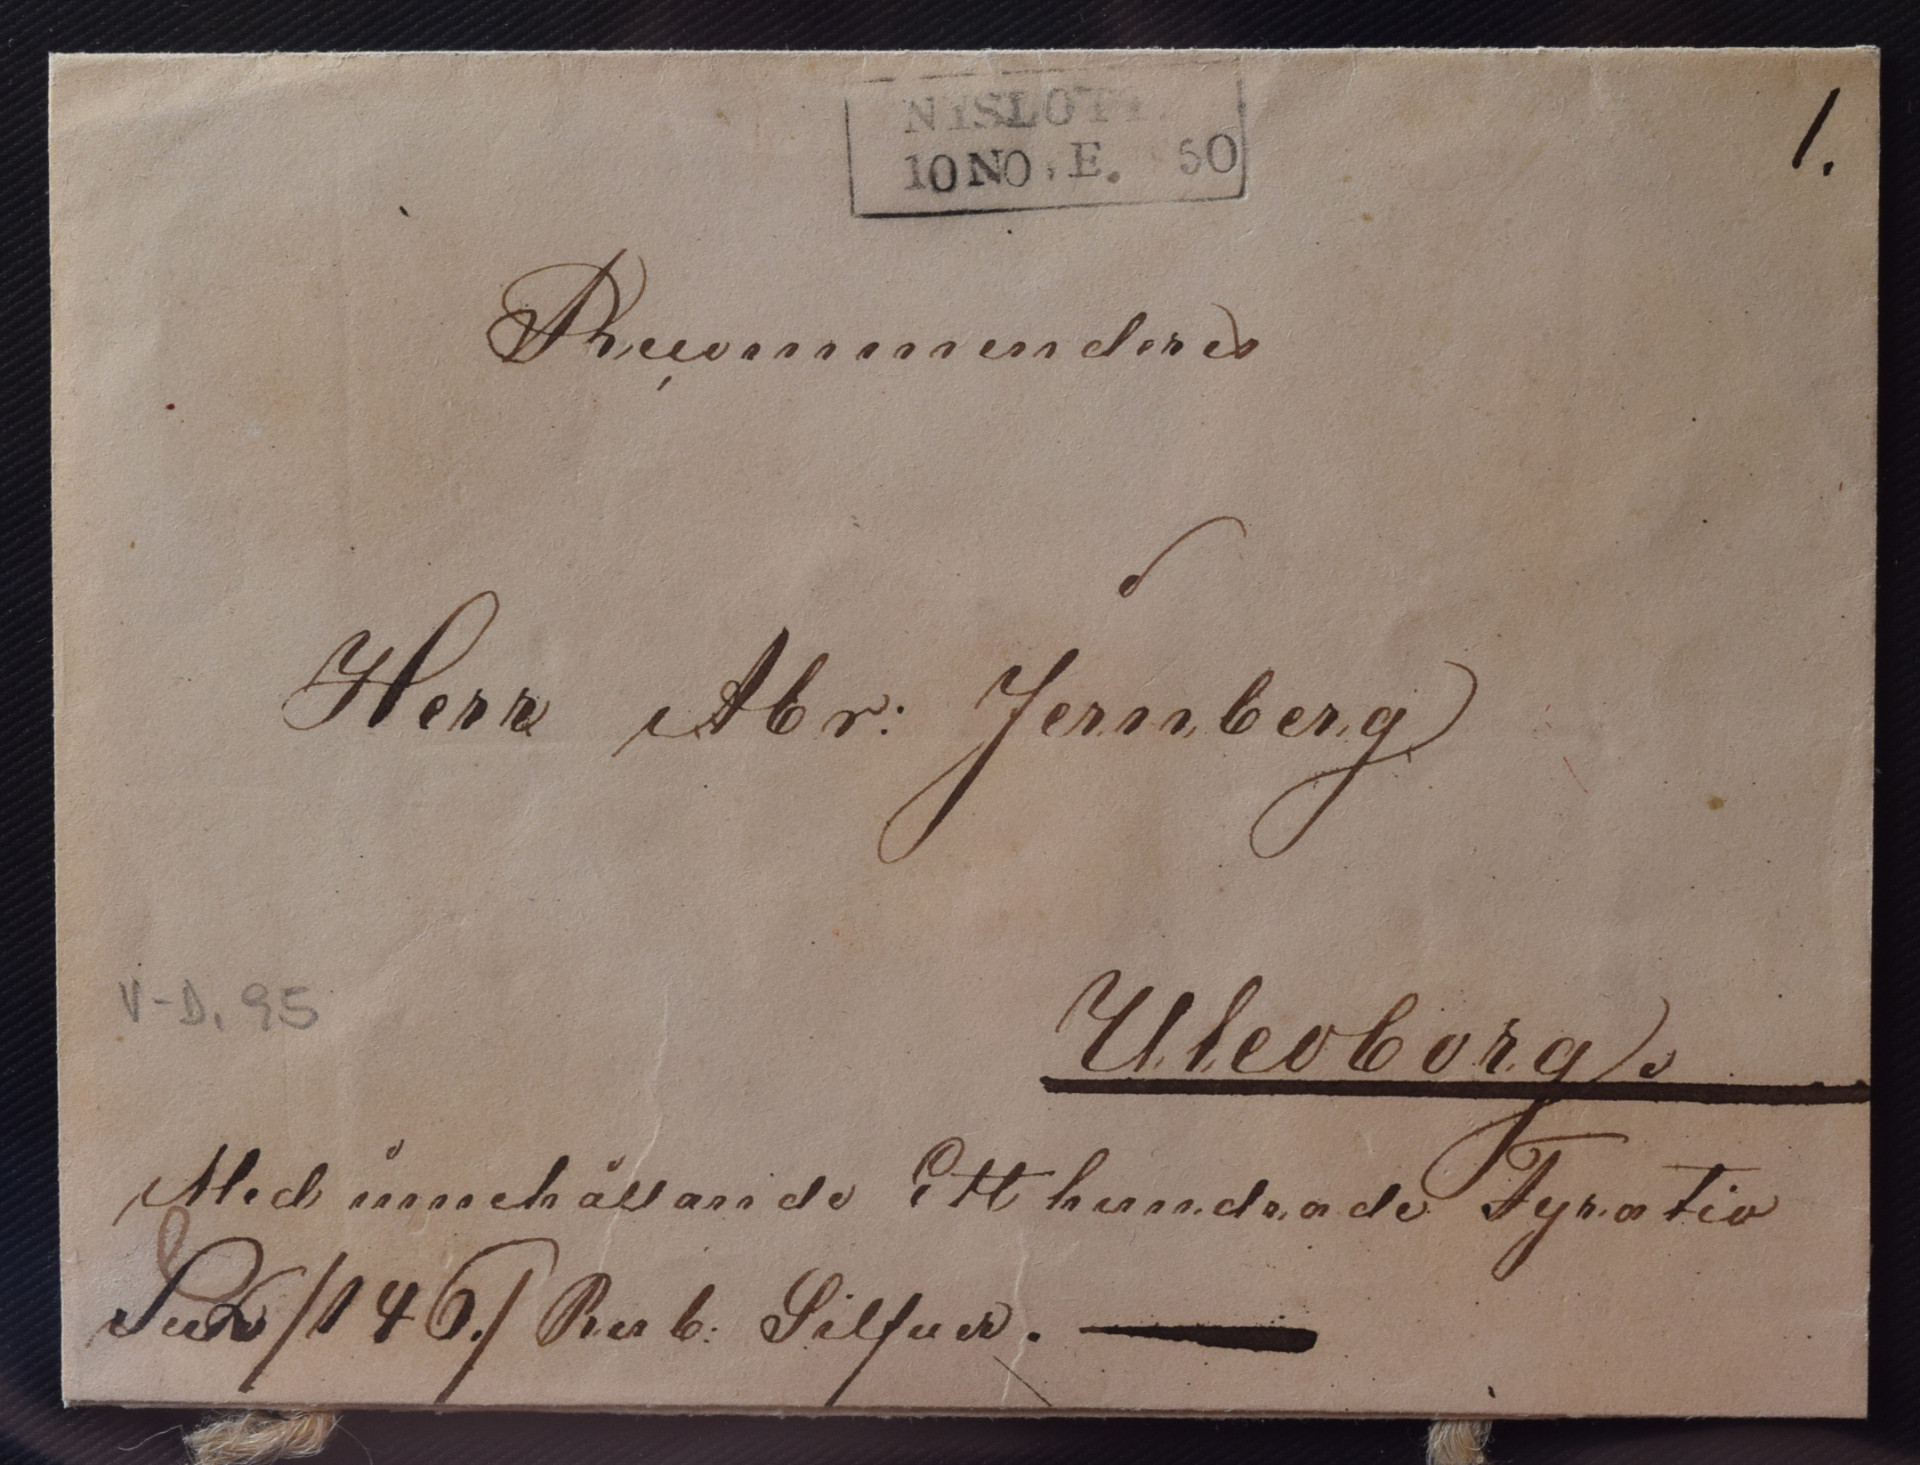 NYSLOTT
10 NOVE. 50
1.
Recommenderas
Herr Abr: Jernberg
Uleoborg.
V-D. 95
Med innehållande Ett hundrade Fyratio
Sex /146./ Rub: Silfver.